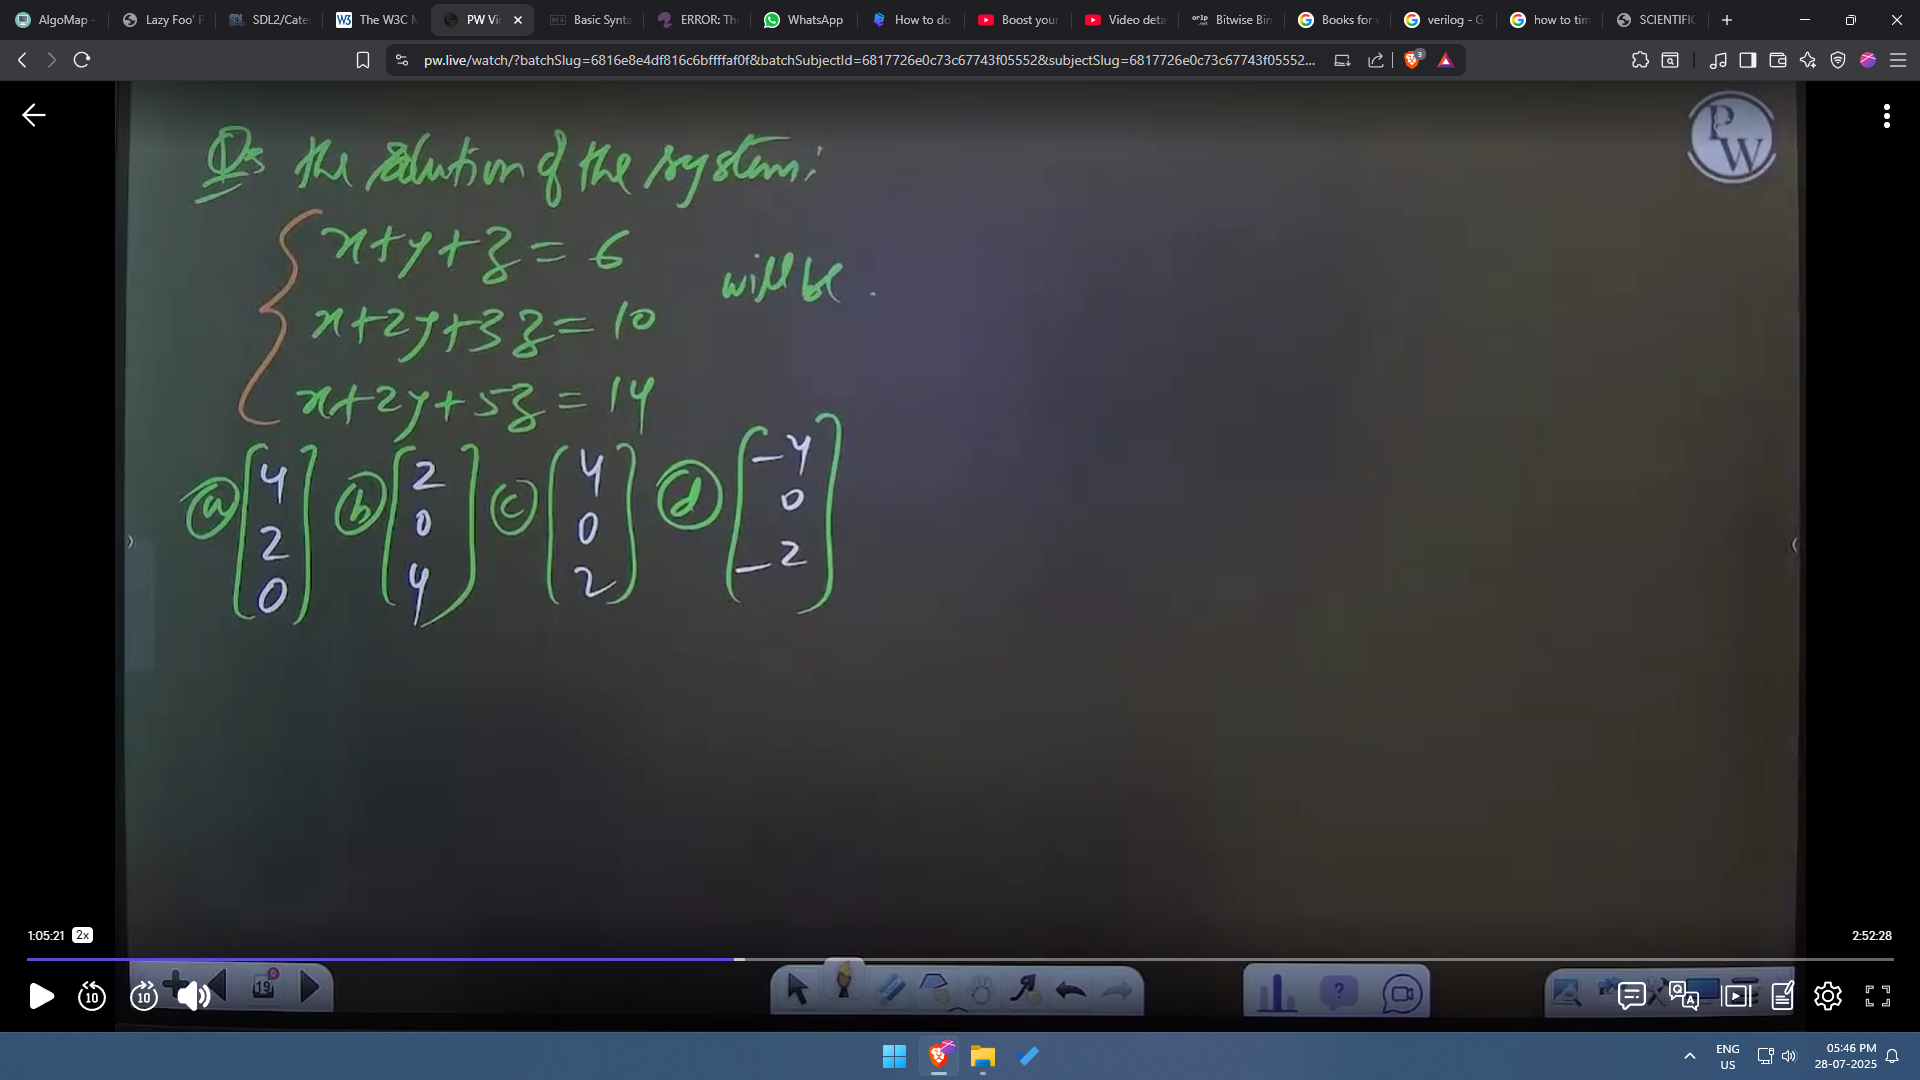 AlgoMap -
Lazy Foo' P
SDL2/Cate
The W3C M
PW Vi
Basic Synta
ERROR: Th
WhatsApp
How to do
Boost your
Video deta
Bitwise Bin
Books for v
verilog - G
how to tim
SCIENTIFIC
pw.live/watch/?batchSlug=6816e8e4df816c6bffffaf0f&batchSubjectId=6817726e0c73c67743f05552&subjectSlug=6817726e0c73c67743f05552...
3
PW
Qs the solution of the system:
x+y+z = 6
will be.
x+2y+3z = 10
x+2y+5z = 14
(a) [4 2 0] (b) [2 0 4] (c) [4 0 2] (d) [-4 0 -2]
1:05:21 2x
2:52:28
10 10 19
ENG
US
05:46 PM
28-07-2025